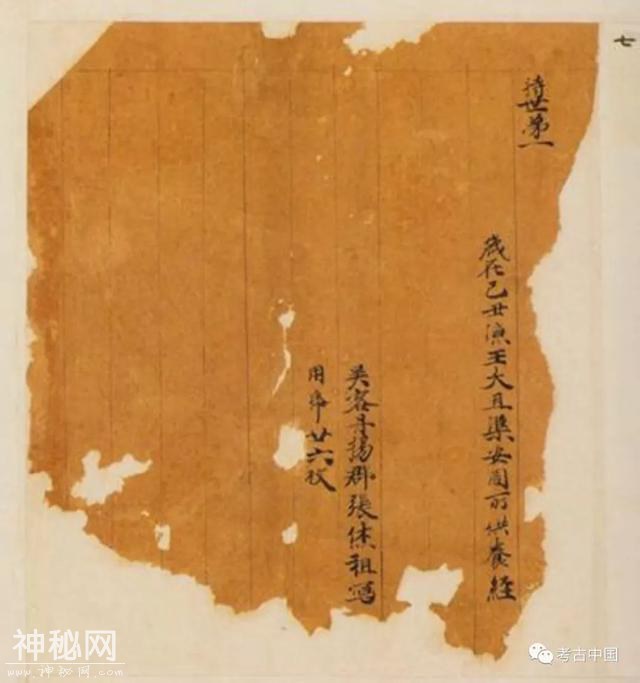 七
持世第一
歲在己丑涼王大且渠安周所供養經
吴客丹揚郡張休祖寫
用帋廿六枚
神秘网
www.shenmi.com.cn
考古中国